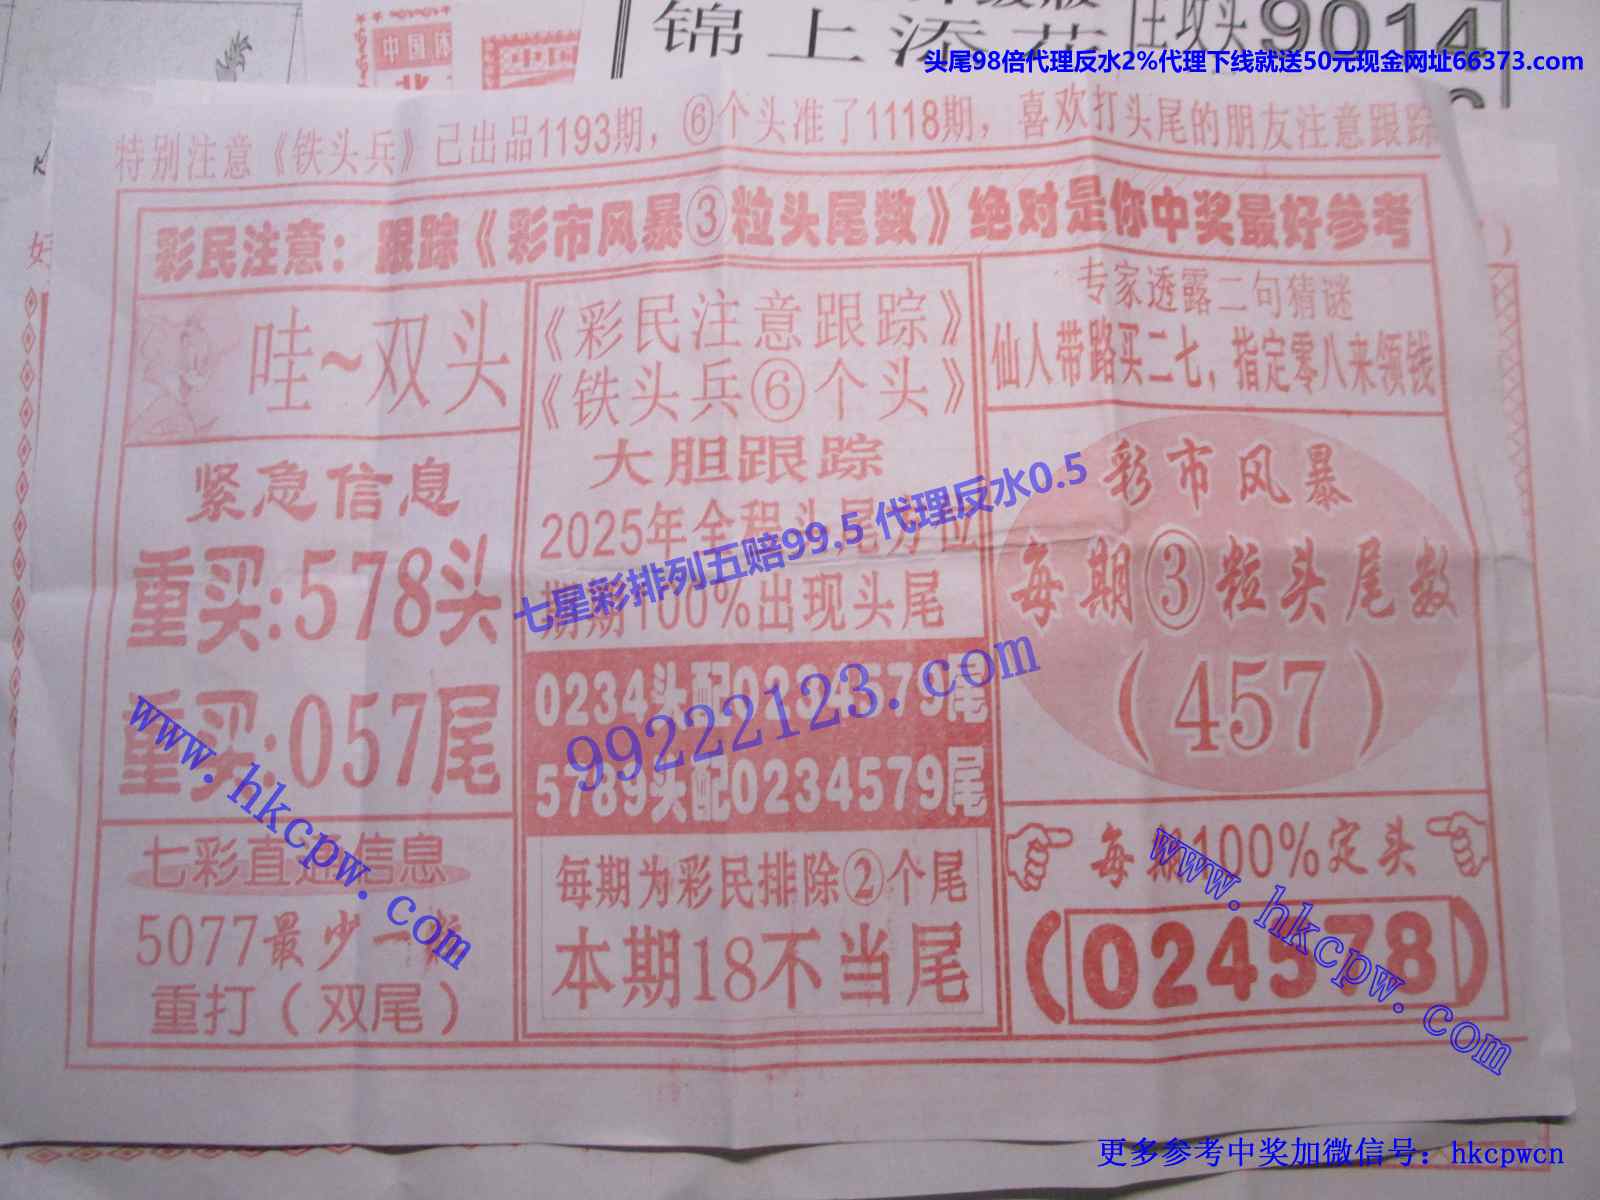 锦上添花
9014
头尾98倍代理反水2%代理下线就送50元现金网址66373.com
中国体
特别注意《铁头兵》己出品1193期，⑥个头准了1118期，喜欢打头尾的朋友注意跟踪
彩民注意：跟踪《彩市风暴③粒头尾数》绝对是你中奖最好参考
哇~双头
紧急信息
重买:578头
重买:057尾
七彩直通信息
5077最少一
重打（双尾）
《彩民注意跟踪》
《铁头兵⑥个头》
大胆跟踪
2025年全程头尾方位
期期100%出现头尾
0234头配0234579尾
5789头配0234579尾
每期为彩民排除②个尾
本期18不当尾
专家透露二句猜谜
仙人带路买二七，指定零八来领钱
彩市风暴
每期③粒头尾数
（457）
每期100%定头
（024578）
七星彩排列五赔99.5 代理反水0.5
99222123.com
www.hkcpw.com
www.hkcpw.com
更多参考中奖加微信号：hkcpwcn